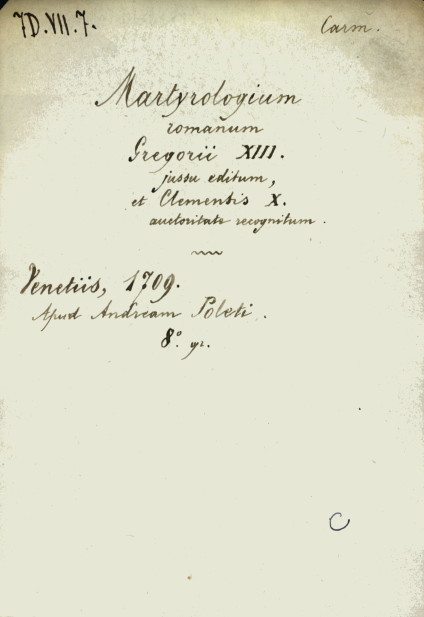 7D.VII.7.
Carm.
Martyrologium
romanum
Gregorii XIII.
jussu editum,
et Clementis X.
auctoritate recognitum.
Venetiis, 1709.
Apud Andream Poleti.
8° gr.
C